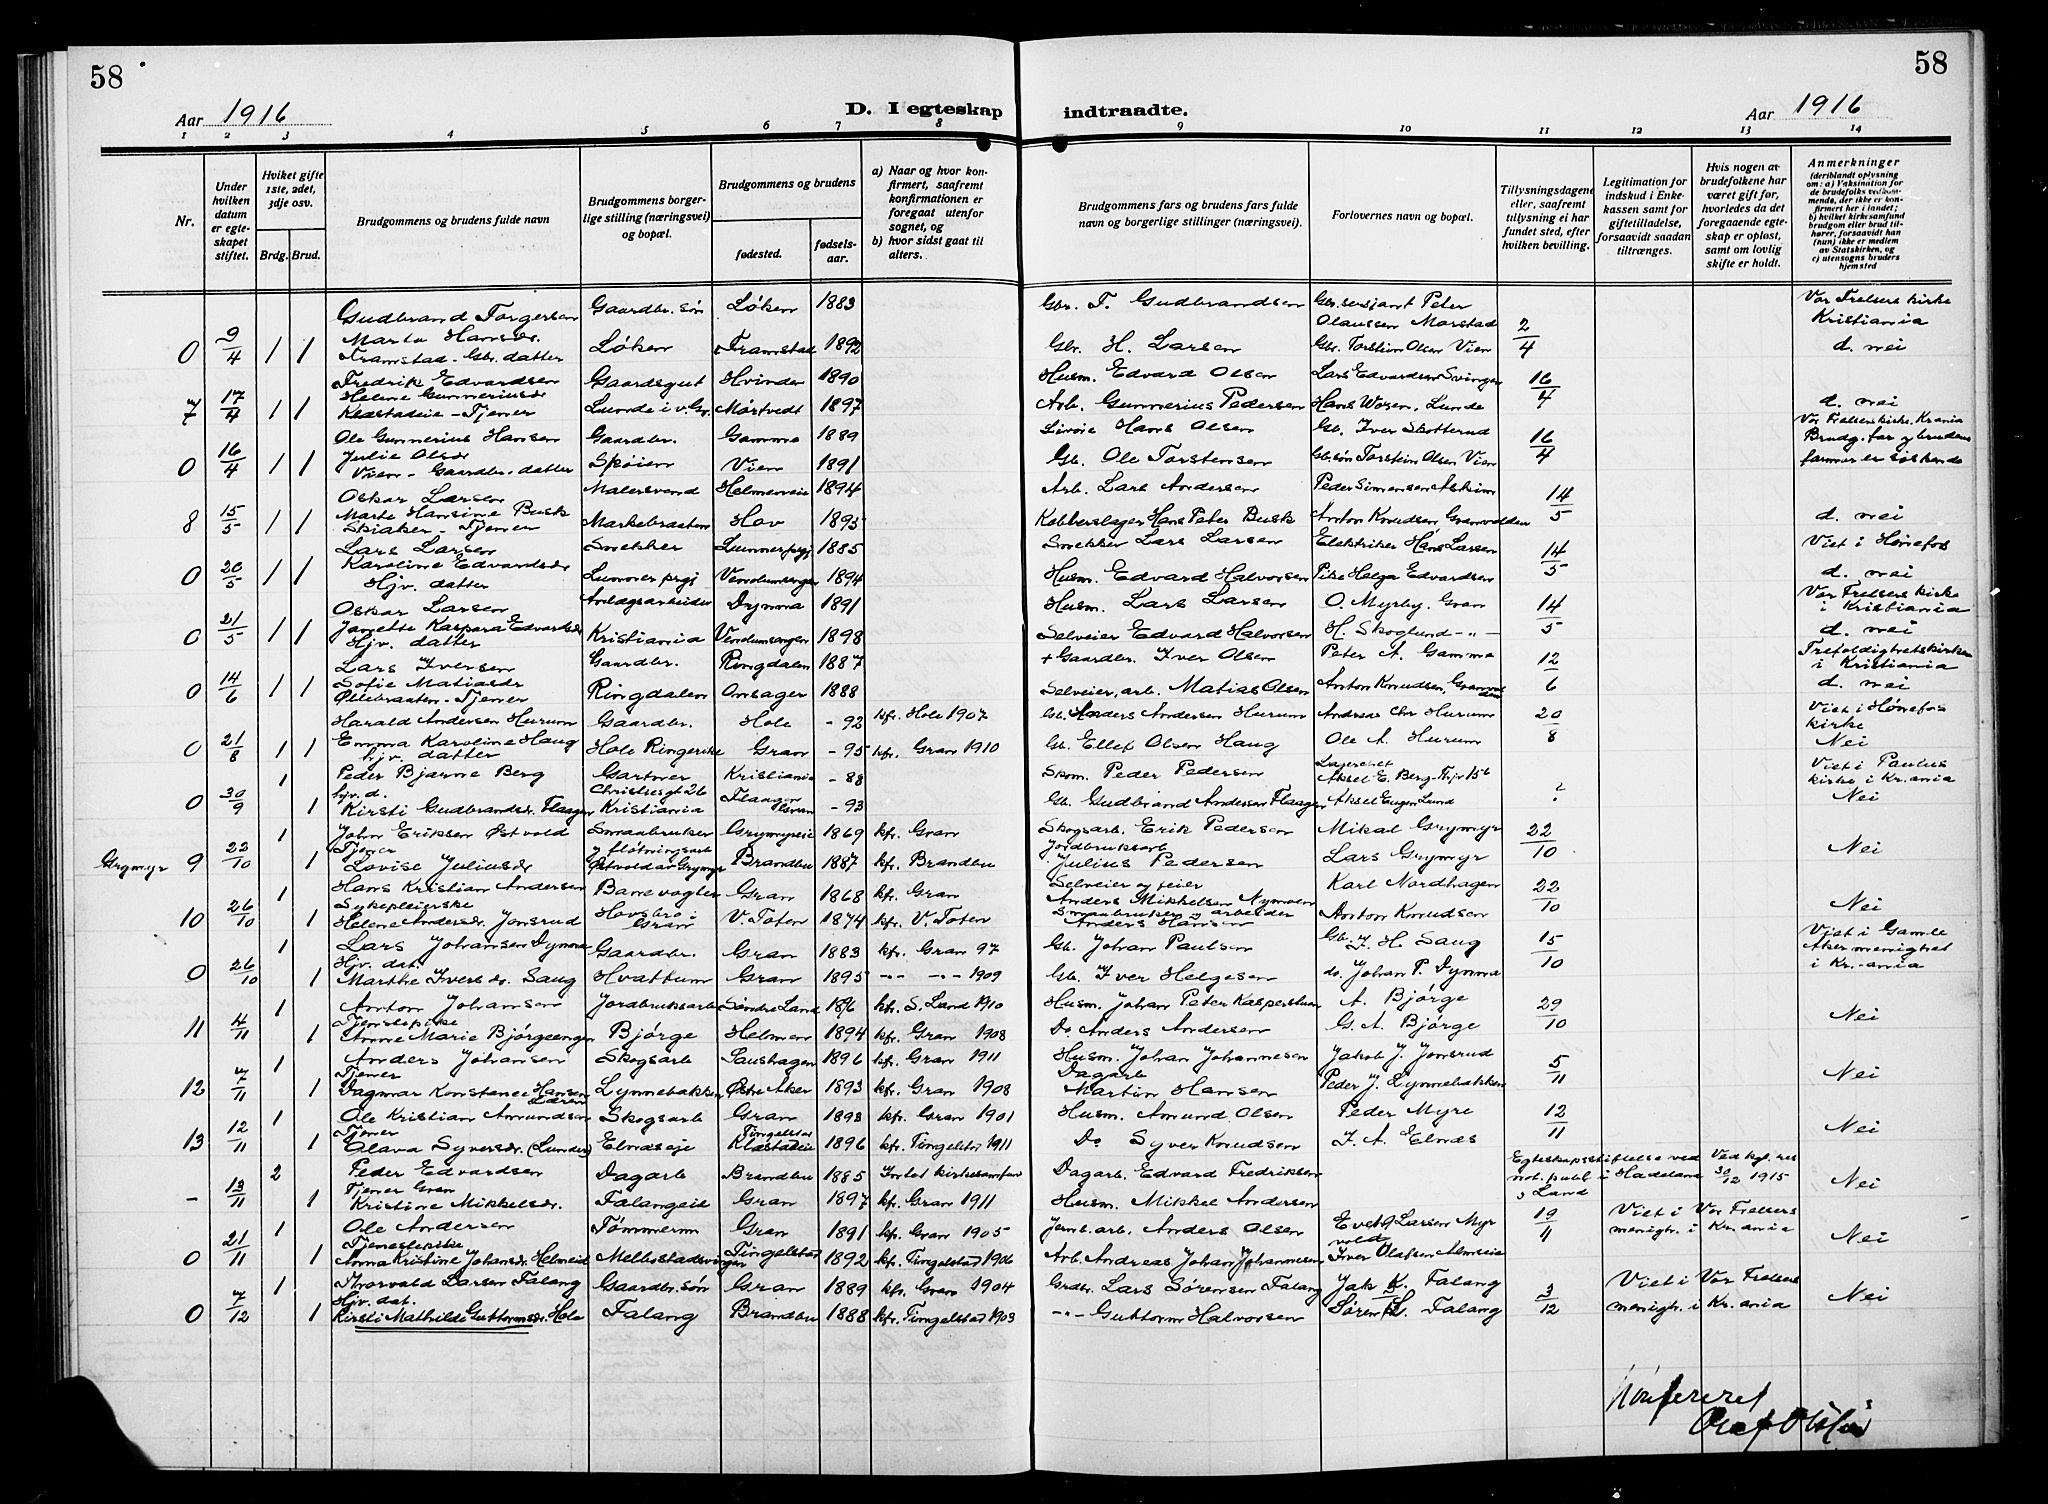 58
58
Aar 1916
D. I egteskap indtraadte.
Aar 1916
1 2 3 4 5 6 7 8 9 10 11 12 13 14
Nr.
Under hvilken datum er egteskapet stiftet.
Hviket gifte 1ste, 2det, 3dje osv.
Brdg. Brud.
Brudgommens og brudens fulde navn
Brudgommens borgerlige stilling (næringsvei) og bopæl.
Brudgommens og brudens
fødested. fødselsaar.
a) Naar og hvor konfirmert, saafremt konfirmationen er foregaat utenfor sognet, og
b) hvor sidst gaat til alters.
Brudgommens fars og brudens fars fulde navn og borgerlige stillinger (næringsvei).
Forlovernes navn og bopæl.
Tillysningsdagene eller, saafremt tillysning ei har fundet sted, efter hvilken bevilling.
Legitimation for indskud i Enkekassen samt for giftetilladelse, forsaavidt saadan tiltrænges.
Hvis nogen av brudefolkene har været gift før, hvorledes da det foregaaende egteskap er opløst, samt om lovlig skifte er holdt.
Anmerkninger
(deriblandt oplysning om: a) Vaksination for de brudefolks vedkommende, der ikke er konfirmert her i landet; b) hvilket kirkesamfund brudgom eller brud tilhører, forsaavidt han (hun) ikke er medlem av Statskirken, og c) utensogns bruders hjemsted
Gudbrand Torgersen Gaardbr. søn Løken 1883 Gbr. T. Gudbrandsen Gbr. sersjant Peter Olaussen Morstad Vor Frelsers kirke Kristiania
0 9/4 1 1 Marta Hansdr. Framstad - Gbr. datter Løken Framstad 1892 Gbr. H. Larsen Gbr. Torstein Olsen Vien 2/4 d. nei
Fredrik Edvardsen Gaardsgut Hvinden 1890 Husm. Edvard Olsen Lars Edvardsen Svingen
7 17/4 1 1 Helene Gunneriusdr. Klæstadeie - Tjener Lunde i v. Gr. Mørtvedt 1897 Arb. Gunnerius Pedersen Hans Woxen, Lunde 16/4 d. nei
Ole Gunnerius Hansen Gaardbr. Gamme 1889 Hans Olsen Gb. Iver Skotterud Vor Frelsers kirke. Krania
0 16/4 1 1 Julie Olsdr. Vien - Gaardbr. datter Skøien Vien 1891 Gb. Ole Torstensen Gb.søn Torstein Olsen Vien 16/4 Brudg. far og brudens farmor er søskende
Oskar Larsen Malersvend Helmeneie 1894 Arb. Lars Andersen Peder Simensen Askim
8 15/5 1 1 Marte Hansine Busk Skiaker - Tjener Markebraaten Hov 1895 Kobberslager Hans Peter Busk Anton Knudsen Granvolden 14/5 d. nei
Lars Larsen Snekker Lunner prgj 1885 Snekker Lars Larsen Elektriker Hans Larsen Viet i Hønefos
0 20/5 1 1 Karoline Edvardsdr. Hjv. datter Lunner prgj Vendumsengen 1894 Husm. Edvard Halvorsen Pike Helga Edvardsen 14/5 d. nei
Oskar Larsen Anlægsarbeider Dynna 1891 Husm. Lars Larsen O. Myrby, Gran Vor Frelsers kirke i Kristiania
0 21/5 1 1 Janette Kaspara Edvardsdr. Hjv. datter Kristiania Vendumsengen 1898 Selveier Edvard Halvorsen H. Skoglund -"- 14/5 d. nei
Lars Iversen Gaardbr. Ringdalen 1887 + Gaardbr. Iver Olsen Peter A. Gamme Trefoldighetskirken i Kristiania
0 14/6 1 1 Sofie Matiasdr. Øllebraaten - Tjener Ringdalen Onsager 1888 Selveier, arb. Matias Olsen Anton Knudsen, Granvolden 12/6 d. nei
Harald Andersen Hurum Gaardbr. Hole - 92 kfr. Hole 1907 Gb. Anders Andersen Hurum Andreas Chr Hurum Viet i Hønefos kirke
0 21/8 1 1 Emma Karoline Haug hjv. datter Hole Ringerike Gran - 95 kfr. Gran 1910 Gb. Ellef Olsen Haug Ole A. Hurum 20/8 Nei
1 Peder Bjarne Berg Gartner Kristiania - 88 Skom. Peder Pedersen Aksel E. Berg - 15b Viet i Paulus kirke i Kr.ania
0 30/9 1 hjv. d. Kirsti Gudbrandsdr. Flaagen Christiesgt 26 Kristiania Flaagen Gran - 93 Gb. Gudbrand Andersen Flaagen Aksel Eugen Lund ? Nei
1 John Eriksen Østvold Smaabruker & fløtningsarb Grymyreie 1869 kfr. Gran Skogsarb. Erik Pedersen Mikal Grymyr
Grymyr 9 22/10 1 Tjener Lovise Juliusdr. Østvold av Grymyr Brandbu 1887 kfr. Brandbu Jordbruksarb Julius Pedersen Lars Grymyr 22/10 Nei
1 Hans Kristian Andersen Banevogter Gran 1868 kfr. Gran Selveier og feier Anders Mikkelsen Nymoen Karl Nordhagen
10 26/10 1 Sykepleierske Helene Andersdr. Jonsrud Hovsbro i Gran V. Toten 1874 kfr. V. Toten Smaabruker og arbeider Anders Hansen Anton Knudsen 22/10 Nei
1 Lars Johansen Dynna Gaardbr. Gran 1883 kfr. Gran 97 Gb. Johan Paulsen Gb. I. H. Saug Viet i Gamle Aker menighet i Kr.-ania
0 26/10 1 Hjv. dat. Marthe Iversdr. Saug Hvattum Gran 1895 -"- -"- 1909 Gb. Iver Helgesen do. Johan P. Dynna 15/10
1 Anton Johansen Jordbruksarb Søndre Land 1896 kfr. S. Land 1910 Husm. Johan Peter Kaspersen A. Bjørge
11 4/11 1 Tjenstepike Anne Marie Bjørgeengen Bjørge Helmen 1894 kfr. Gran 1908 Do Anders Andersen G. A. Bjørge 29/10 Nei
1 Anders Johansen Skogsarb Saushagen 1896 kfr. Gran 1911 Husm. Johan Johannesen Jakob J. Jonsrud
12 7/11 1 Tjener Dagmar Konstance Hansen Lynnebakken Østre Aker 1893 kfr. Gran 1908 Dagarb Martin Hansen Peder J. Lynnebakken 5/11 Nei
1 Ole Kristian Amundsen Skogsarb Gran 1898 kfr. Gran 1901 Husm. Amund Olsen Peder Myre
13 12/11 1 Tjener Olava Syversdr. (Lunder) Elnæseje Tingelstad Klæstadeie 1896 kfr. Tingelstad 1911 Do Syver Knudsen I. A. Elnæs 12/11 Nei
2 Peder Edvardsen Dagarb Brandbu 1885 Intet kirkesamfun Dagarb. Edvard Fredriksen Egteskapsstiftelse ved not. publ. i Hadeland & Land Ved kgl. res 30/12 1915
- 13/11 1 Tjener Gran Kristine Mikkelsdr. Falangeie Gran 1897 kfr. Gran 1911 Husm. Mikkel Andersen Nei
1 Ole Andersen Tømmerm Gran 1891 kfr. Gran 1905 Jernb. arb. Anders Olsen Larsen Myrvold Viet i Vor Frelsers menigh. i Kr.ania
0 21/11 1 Tjenestepike Anna Kristine Johansdr. Helmeid Mellostadsvingen Tingelstad 1892 kfr. Tingelstad 1906 Arb. Andreas Johan Johannesen Iver Olafsen Almseie 19/11 Nei
1 Thorvald Larsen Falang Gaardbr. søn Gran 1889 kfr. Gran 1904 Grdbr. Lars Sørensen Falang Jak K. Falang Viet i Vor Frelsers menigh. i Kr.ania
0 7/12 1 Hjv. dat. Kirsti Mathilde Guttormsdr. Hole Falang Brandbu 1888 kfr. Tingelstad 1903 -"- Guttorm Halvorsen Søren L. Falang 3/12 Nei
Konfereret
Olaf Olsen